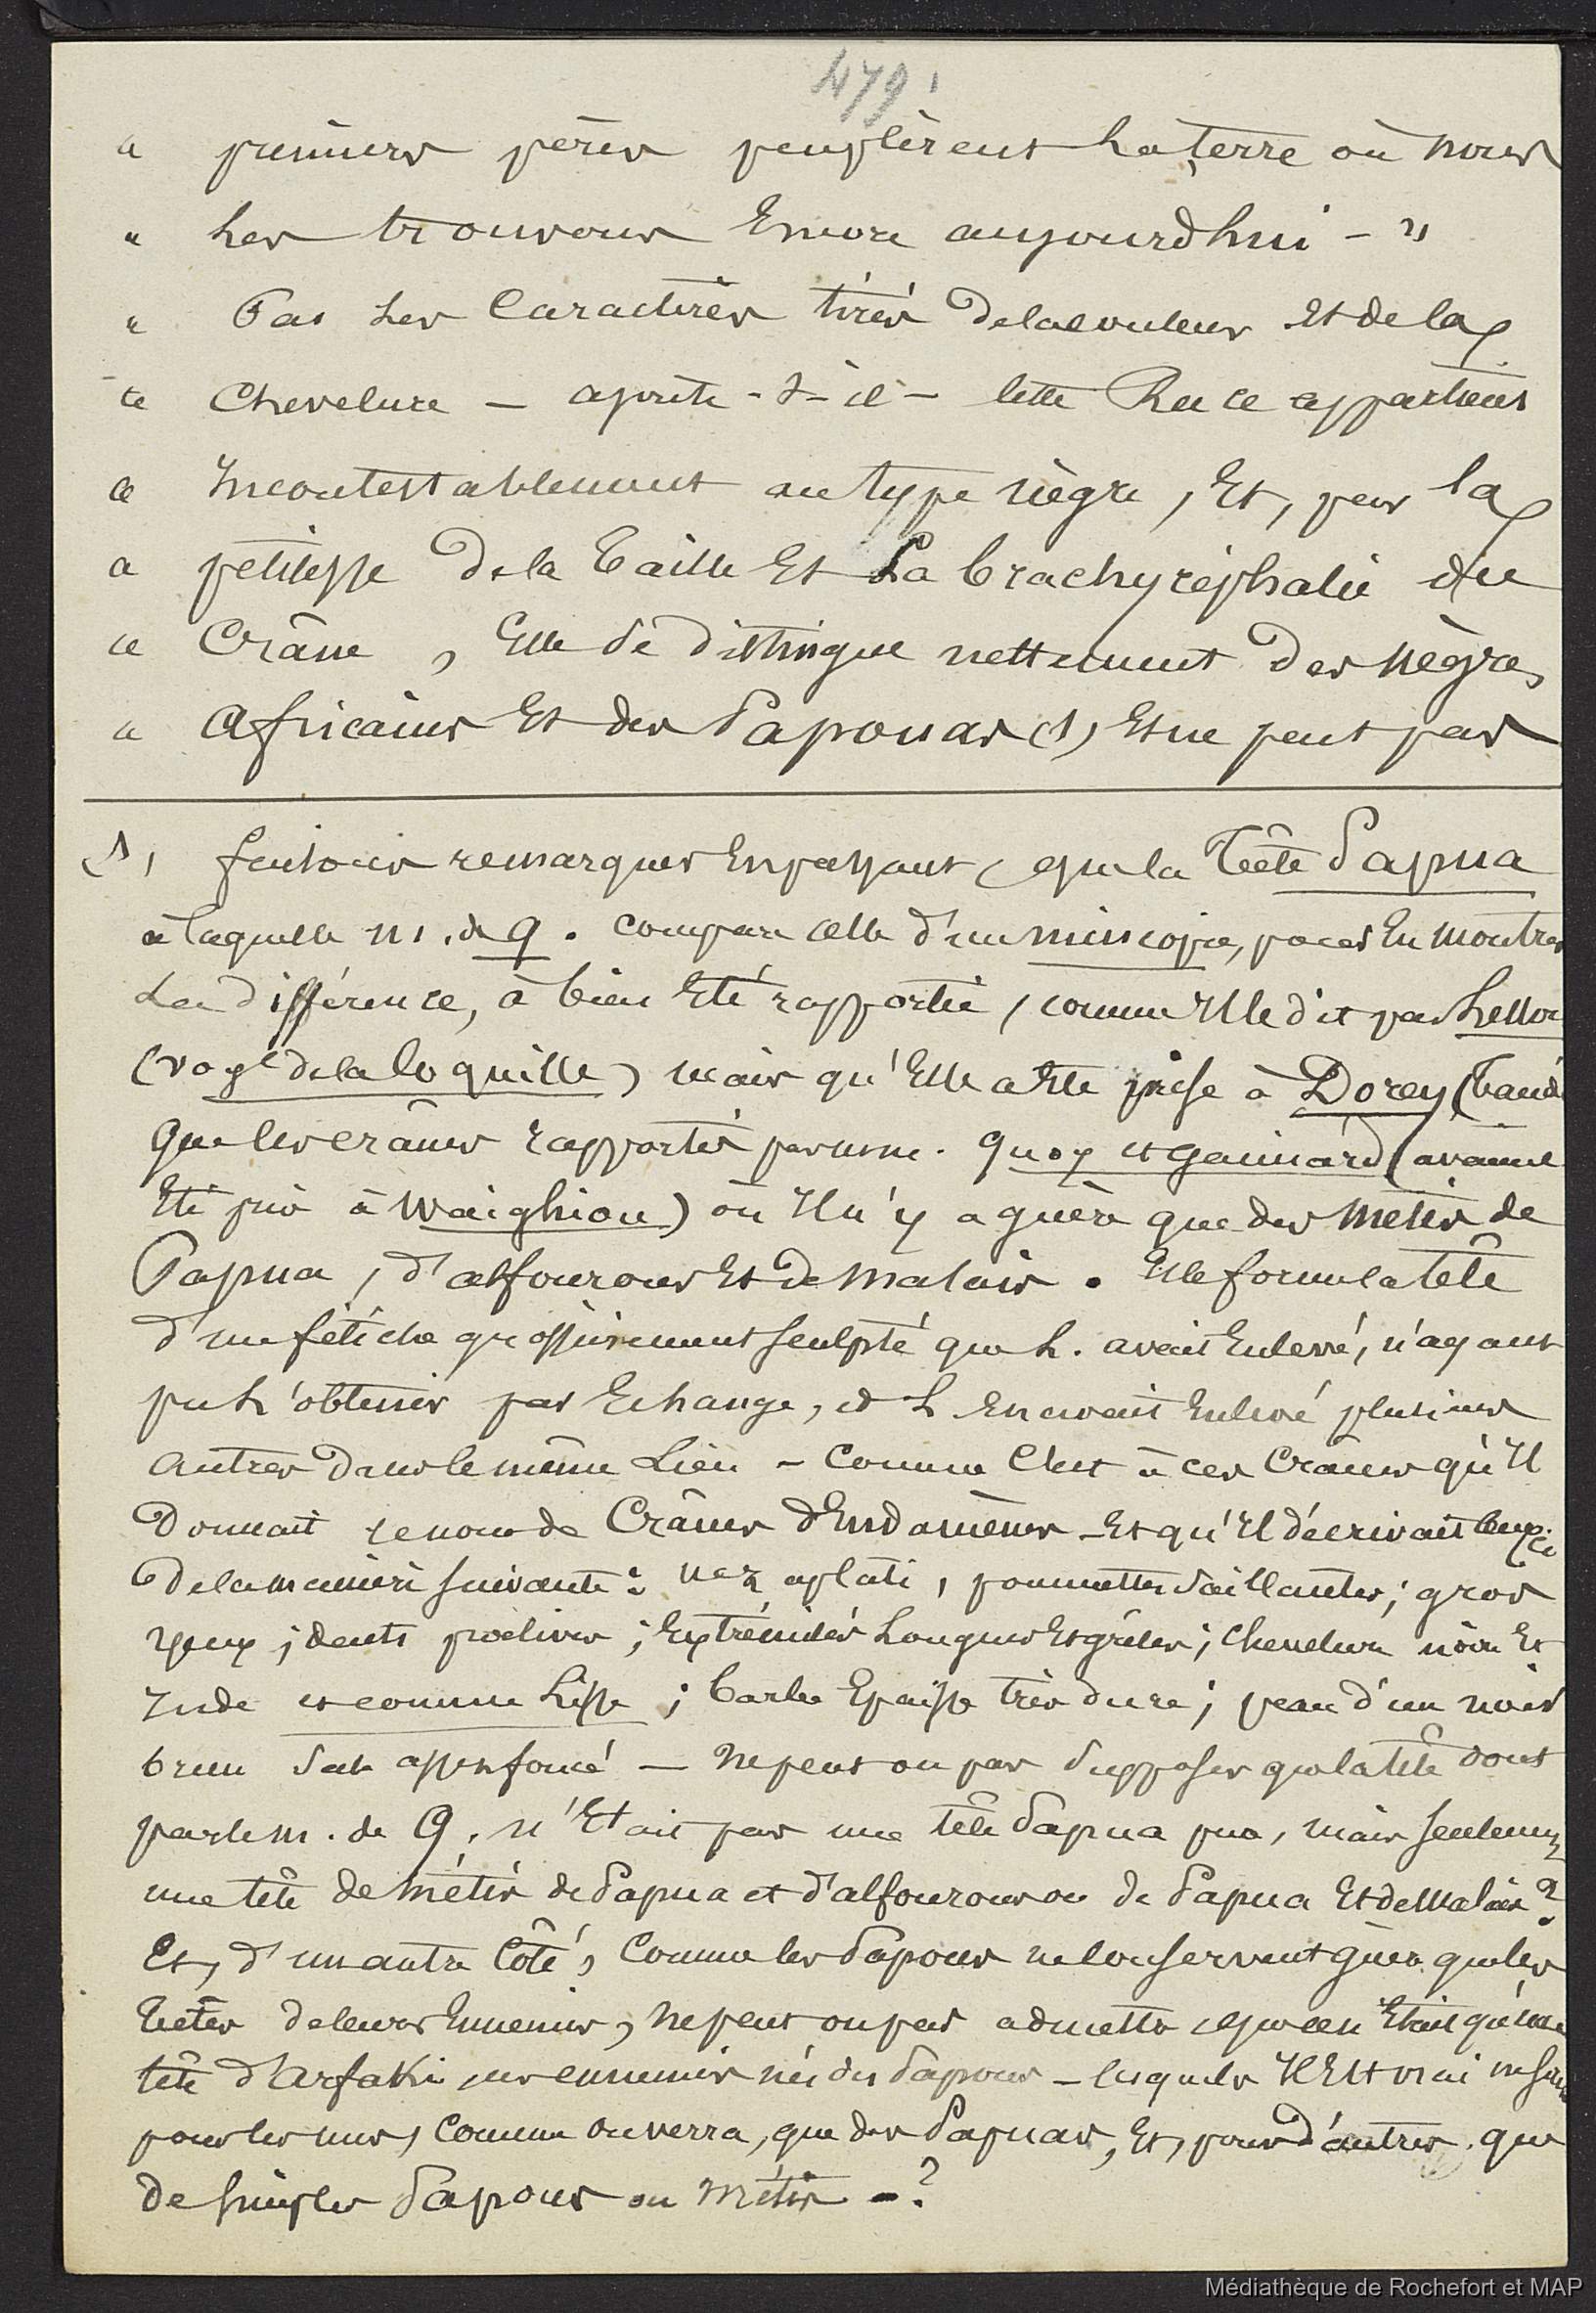 479.
" premiers pères peuplèrent La terre où nous
" Les trouvons Encore aujourd'hui - "
" Par Les Caractères tirés de la couleur Et de la
" Chevelure — ajoute-t-il - cette Race appartient
" Incontestablement au type nègre, Et, par la
" petitesse de la Taille Et La brachycéphalie du
" Crâne, Elle se distingue nettement des nègres
" Africains Et des Papouas (1) Et ne peut pas
(1) faisons remarquer En passant, que la Tête Papua
à laquelle M. de Q. compare celle d'un mincopie, pour En montrer
La différence, à bien Eté rapportée, comme Il le dit par Lesson
(voye de la Coquille) mais qu'Elle a Eté prise à Dorey (tandis
que les crânes rapportés par MM. Quoy et Gaimard (avaient
Eté pris à Waighiou) où Il n'y a guère que des métis de
Papua, d'alfourous Et de Malais. Elle forme la tête
d'un fétiche grossièrement sculpté que L. avait Enlevé, n'ayant
pu L'obtenir par Echange, et L. En avait Enlevé plusieurs
autres dans le même Lieu - Comme C'est à ces Crânes qu'Il
Donnait le nom de Crânes d'Endamènes - Et qu'Il décrivait ceux-ci
De la manière suivante : nez aplati, pommettes saillantes ; gros
yeux ; dents proclives ; Extrémités Longues Et grêles ; Chevelure noire Et
rude et comme Lisse ; barbe Epaisse très dure ; peau d'un noir
brun sale assez foncé — ne peut on pas supposer que la tête dont
parle M. de Q. n'Etait pas une tête Papua pur, mais seulement
une tête de métis de Papua et d'alfourous ou de Papua Et de Malais ?
Et, d'un autre Côté, Comme les Papous ne conservent guère que les
têtes de leurs Ennemis, ne peut on pas admettre que c'en Etait qu'une
tête d'Arfaki ces ennemis nés des Papous - lesquels Il Est vrai ne sont
pour les uns, comme on verra, que des Papuas, Et, pour d'autres, que
de simples Papous ou métis - ?
Médiathèque de Rochefort et MAP